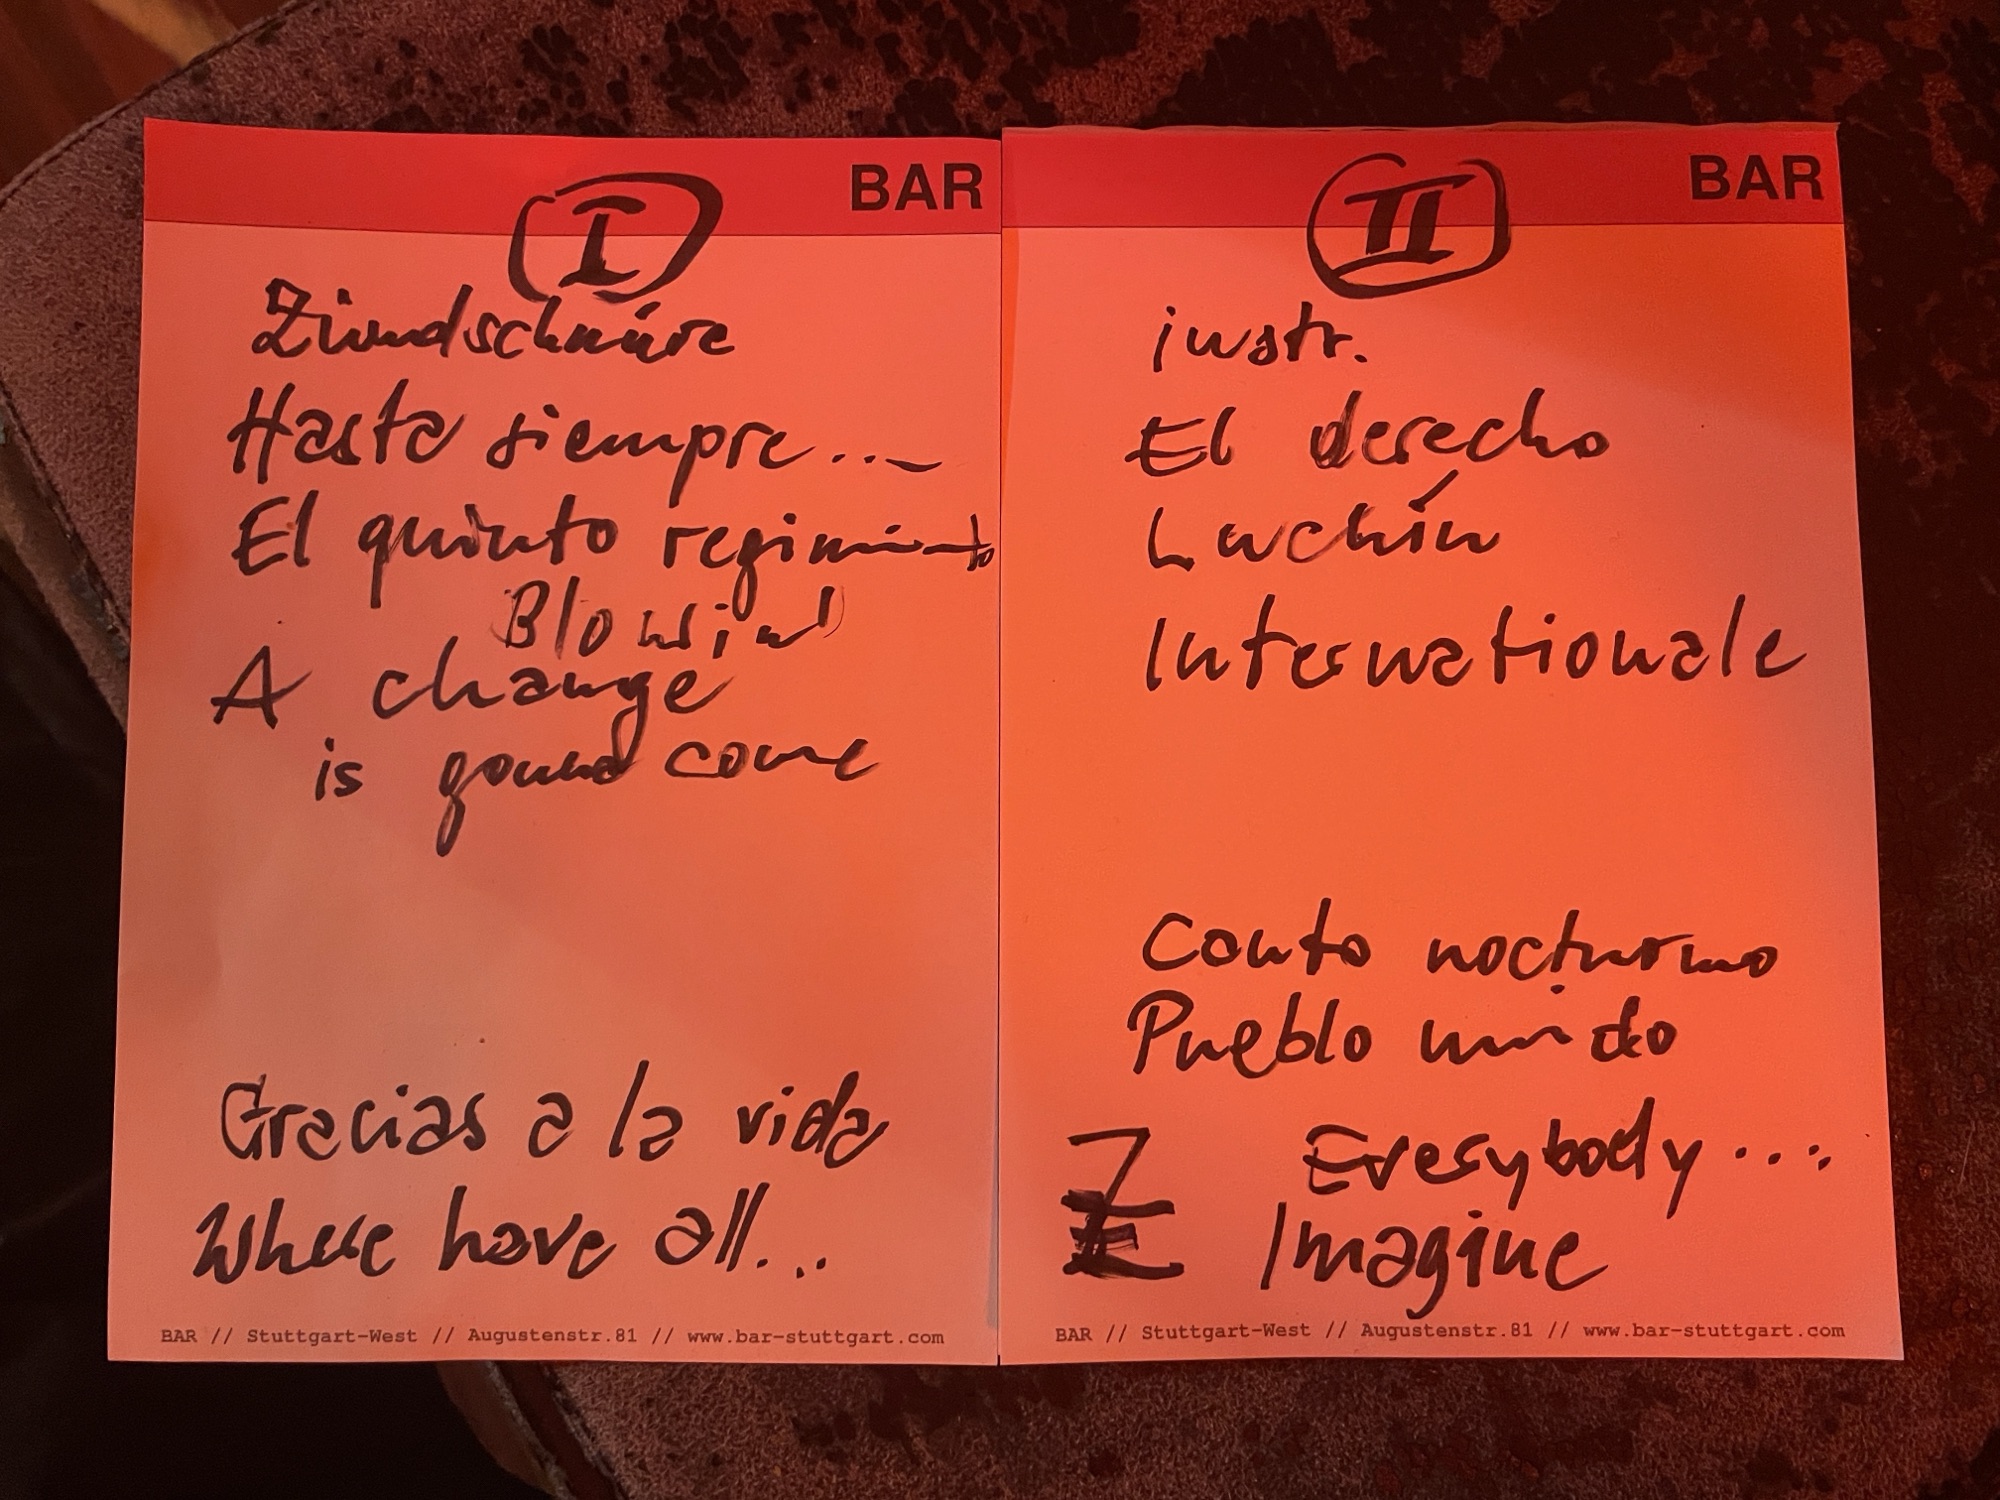 BAR
I
Zündschnüre
Hasta siempre...
El quinto regimiento
Blowin
A change
is gonna come
Gracias a la vida
Where have all...
BAR // Stuttgart-West // Augustenstr.81 // www.bar-stuttgart.com
BAR
II
instr.
El derecho
Luchín
Internationale
Canto nocturno
Pueblo unido
Z Everybody....
Imagine
BAR // Stuttgart-West // Augustenstr.81 // www.bar-stuttgart.com